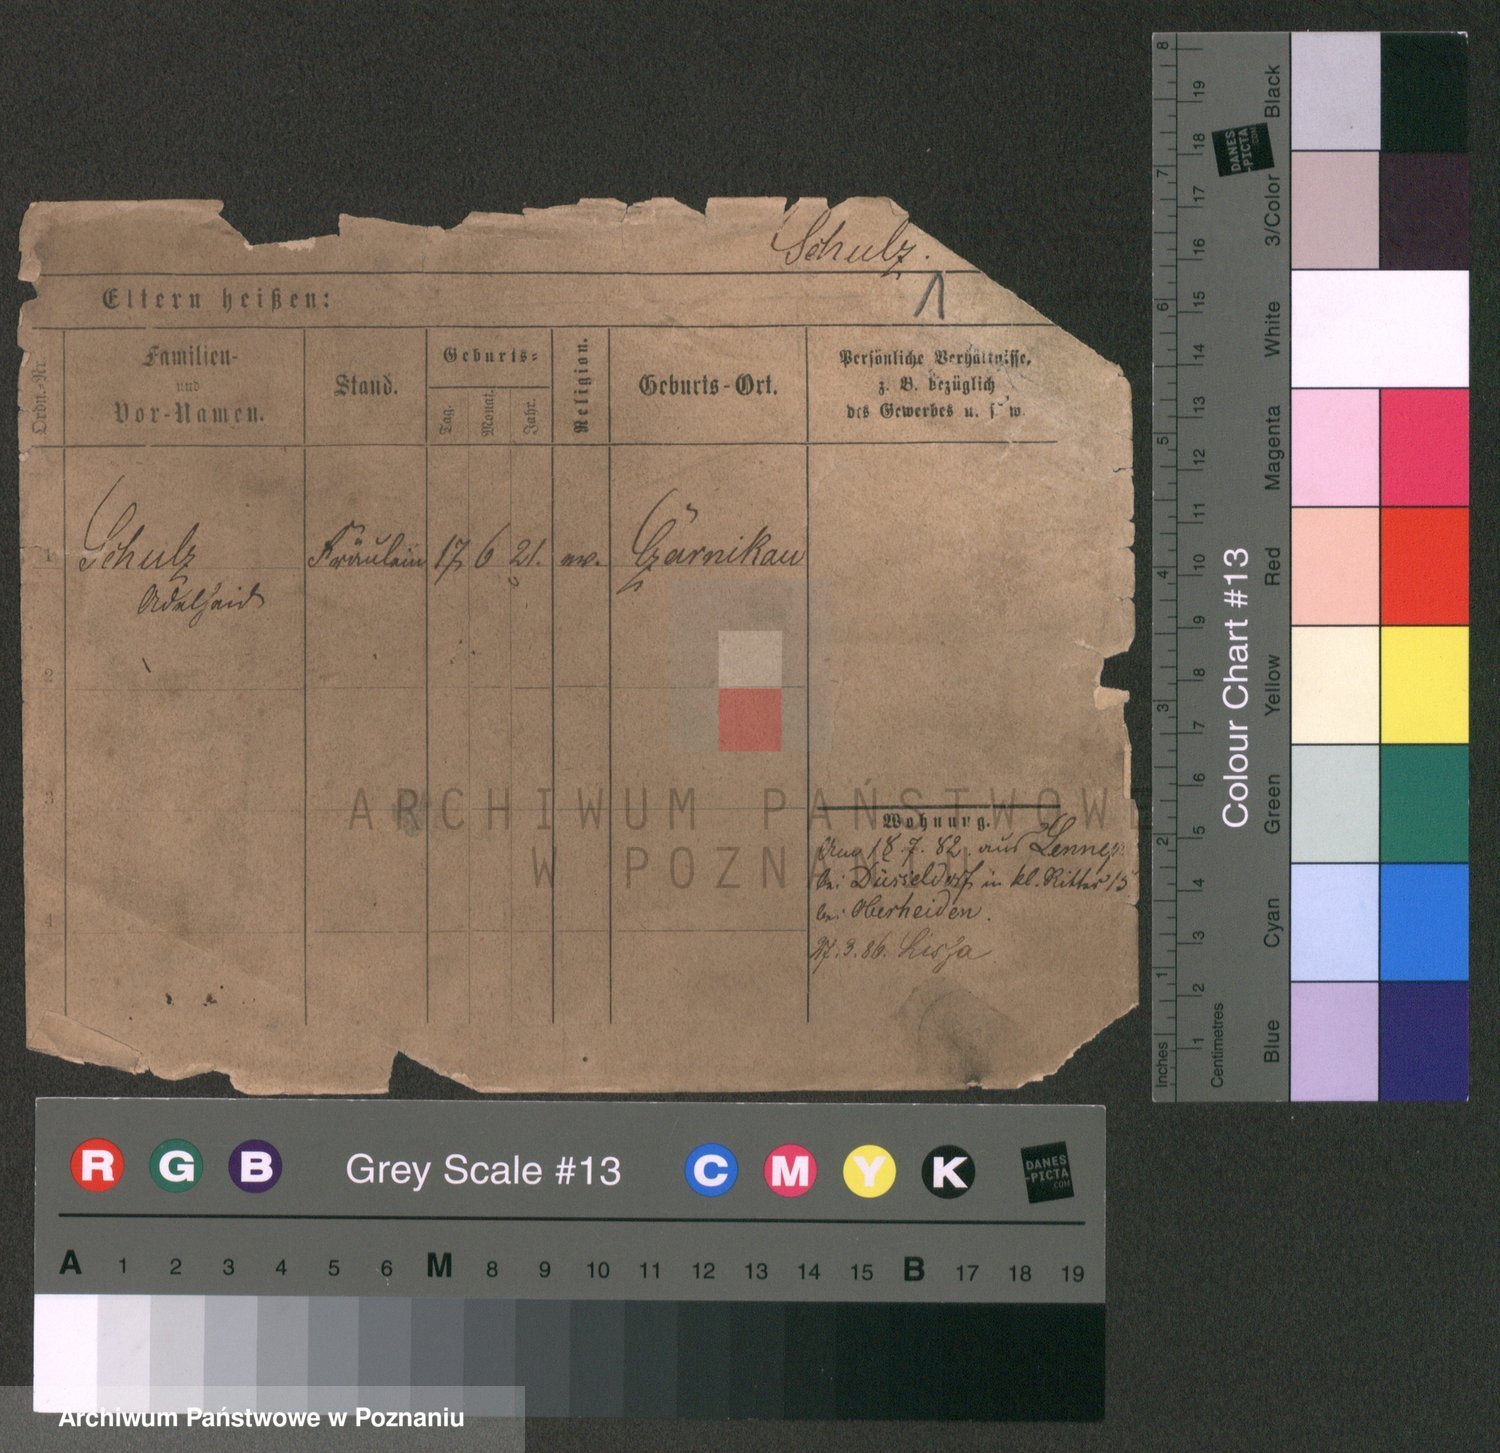 Schulz.
1
Eltern heißen:
Ordn.-Nr.
Familien-
und
Vor-Namen.
Stand.
Geburts-
Tag.
Monat.
Jahr.
Religion.
Geburts-Ort.
Persönliche Verhältnisse,
z. B. bezüglich
des Gewerbes u. s. w.
1
Schulz
Adelheid
Fräulein
17
6
21.
ev.
Czarnikau
2
3
4
Wohnung.
18.7.82. aus Lennep
bei Düsseldorf in kl. Ritter 13
bei Oberheiden.
27.3.86. Lissa
ARCHIWUM PAŃSTWOWE
W POZNANIU
8
7
6
5
4
3
2
1
Inches
19
18
17
16
15
14
13
12
11
10
9
8
7
6
5
4
3
2
1
Centimetres
Colour Chart #13
DANES
-PICTA
.COM
Black
3/Color
White
Magenta
Red
Yellow
Green
Cyan
Blue
R G B Grey Scale #13 C M Y K
DANES
-PICTA
.COM
A 1 2 3 4 5 6 M 8 9 10 11 12 13 14 15 B 17 18 19
Archiwum Państwowe w Poznaniu